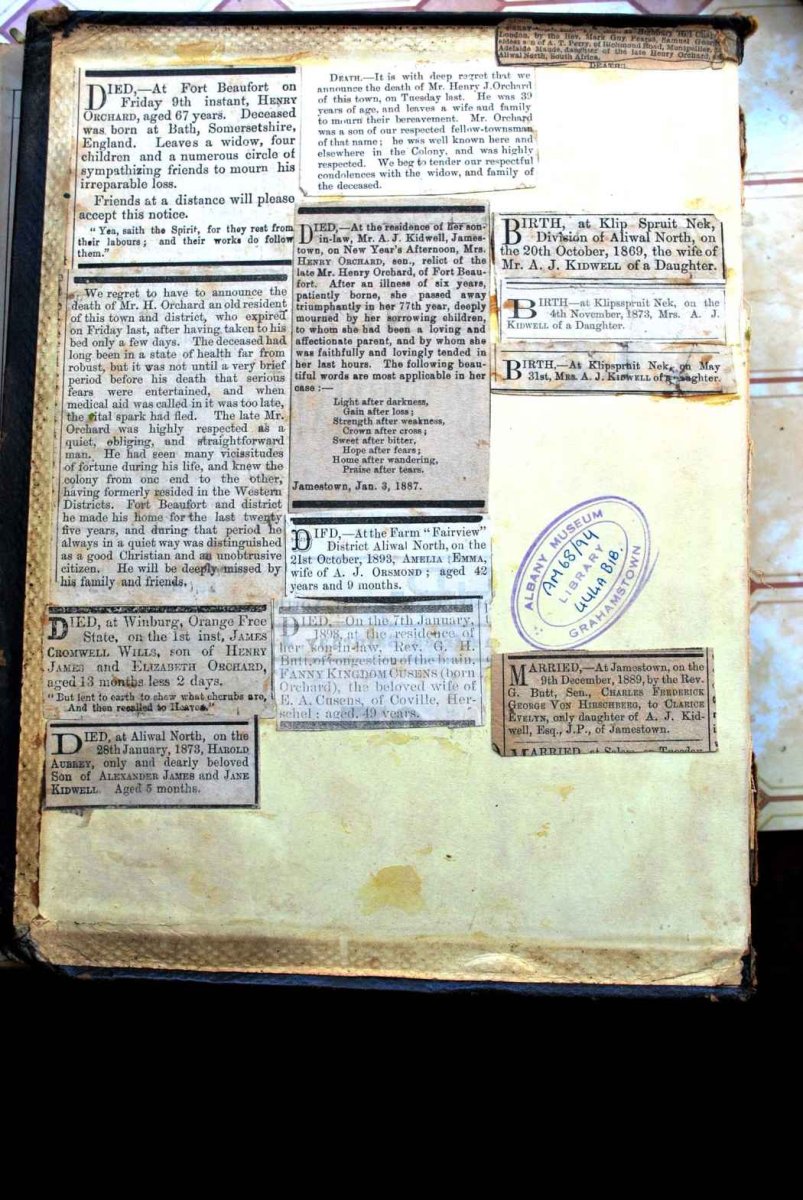 DIED,—At Fort Beaufort on
Friday 9th instant, HENRY
ORCHARD, aged 67 years. Deceased
was born at Bath, Somersetshire,
England. Leaves a widow, four
children and a numerous circle of
sympathizing friends to mourn his
irreparable loss.
Friends at a distance will please
accept this notice.
"Yea, saith the Spirit, for they rest from
their labours; and their works do follow
them."
We regret to have to announce the
death of Mr. H. Orchard an old resident
of this town and district, who expired
on Friday last, after having taken to his
bed only a few days. The deceased had
long been in a state of health far from
robust, but it was not until a very brief
period before his death that serious
fears were entertained, and when
medical aid was called in it was too late,
the vital spark had fled. The late Mr.
Orchard was highly respected as a
quiet, obliging, and straightforward
man. He had seen many vicissitudes
of fortune during his life, and knew the
colony from one end to the other,
having formerly resided in the Western
Districts. Fort Beaufort and district
he made his home for the last twenty
five years, and during that period he
always in a quiet way was distinguished
as a good Christian and an unobtrusive
citizen. He will be deeply missed by
his family and friends.
DIED, at Winburg, Orange Free
State, on the 1st inst, JAMES
CROMWELL WILLS, son of HENRY
JAMES and ELIZABETH ORCHARD,
aged 13 months less 2 days.
"But lent to earth to shew what cherubs are,
And then recalled to Heaven."
DIED, at Aliwal North, on the
28th January, 1873, HAROLD
AUBREY, only and dearly beloved
Son of ALEXANDER JAMES and JANE
KIDWELL. Aged 5 months.
DEATH.—It is with deep regret that we
announce the death of Mr. Henry J. Orchard
of this town, on Tuesday last. He was 39
years of age, and leaves a wife and family
to mourn their bereavement. Mr. Orchard
was a son of our respected fellow-townsman
of that name; he was well known here and
elsewhere in the Colony, and was highly
respected. We beg to tender our respectful
condolences with the widow, and family of
the deceased.
DIED,—At the residence of her son-
in-law, Mr. A. J. Kidwell, James-
town, on New Year's Afternoon, Mrs.
HENRY ORCHARD, sen., relict of the
late Mr. Henry Orchard, of Fort Beau-
fort. After an illness of six years,
patiently borne, she passed away
triumphantly in her 77th year, deeply
mourned by her sorrowing children,
to whom she had been a loving and
affectionate parent, and by whom she
was faithfully and lovingly tended in
her last hours. The following beau-
tiful words are most applicable in her
case:—
Light after darkness,
Gain after loss;
Strength after weakness,
Crown after cross;
Sweet after bitter,
Hope after fears;
Home after wandering,
Praise after tears.
Jamestown, Jan. 3, 1887.
DIED,—At the Farm "Fairview"
District Aliwal North, on the
21st October, 1893, AMELIA EMMA,
wife of A. J. ORSMOND; aged 42
years and 9 months.
DIED,—On the 7th January,
1898, at the residence of
her son-in-law, Rev. G. H.
Butt, of congestion of the brain,
FANNY KINGDOM CUSENS (born
Orchard), the beloved wife of
E. A. Cusens, of Coville, Her-
schel; aged, 49 years.
London, by the Rev. Mark Guy Pearse, Samuel
son of A. T. Perry, of Richmond Road, Montpelier,
Adelaide Maude, daughter of the late Henry Orchard,
Aliwal North, South Africa.
DEATHS
BIRTH, at Klip Spruit Nek,
Division of Aliwal North, on
the 20th October, 1869, the wife of
Mr. A. J. KIDWELL of a Daughter.
BIRTH—at Klipsspruit Nek, on the
4th November, 1873, Mrs. A. J.
KIDWELL of a Daughter.
BIRTH,—At Klipspruit Nek, on May
31st, MRS. A. J. KIDWELL of a daughter.
ALBANY MUSEUM
AM 68/94
LIBRARY
GRAHAMSTOWN
MARRIED,—At Jamestown, on the
9th December, 1889, by the Rev.
G. Butt, Sen., CHARLES FREDERICK
GEORGE VON HIRSCHBERG, to CLARICE
EVELYN, only daughter of A. J. Kid-
well, Esq., J.P., of Jamestown.
MARRIED, at Salem, on Tuesday